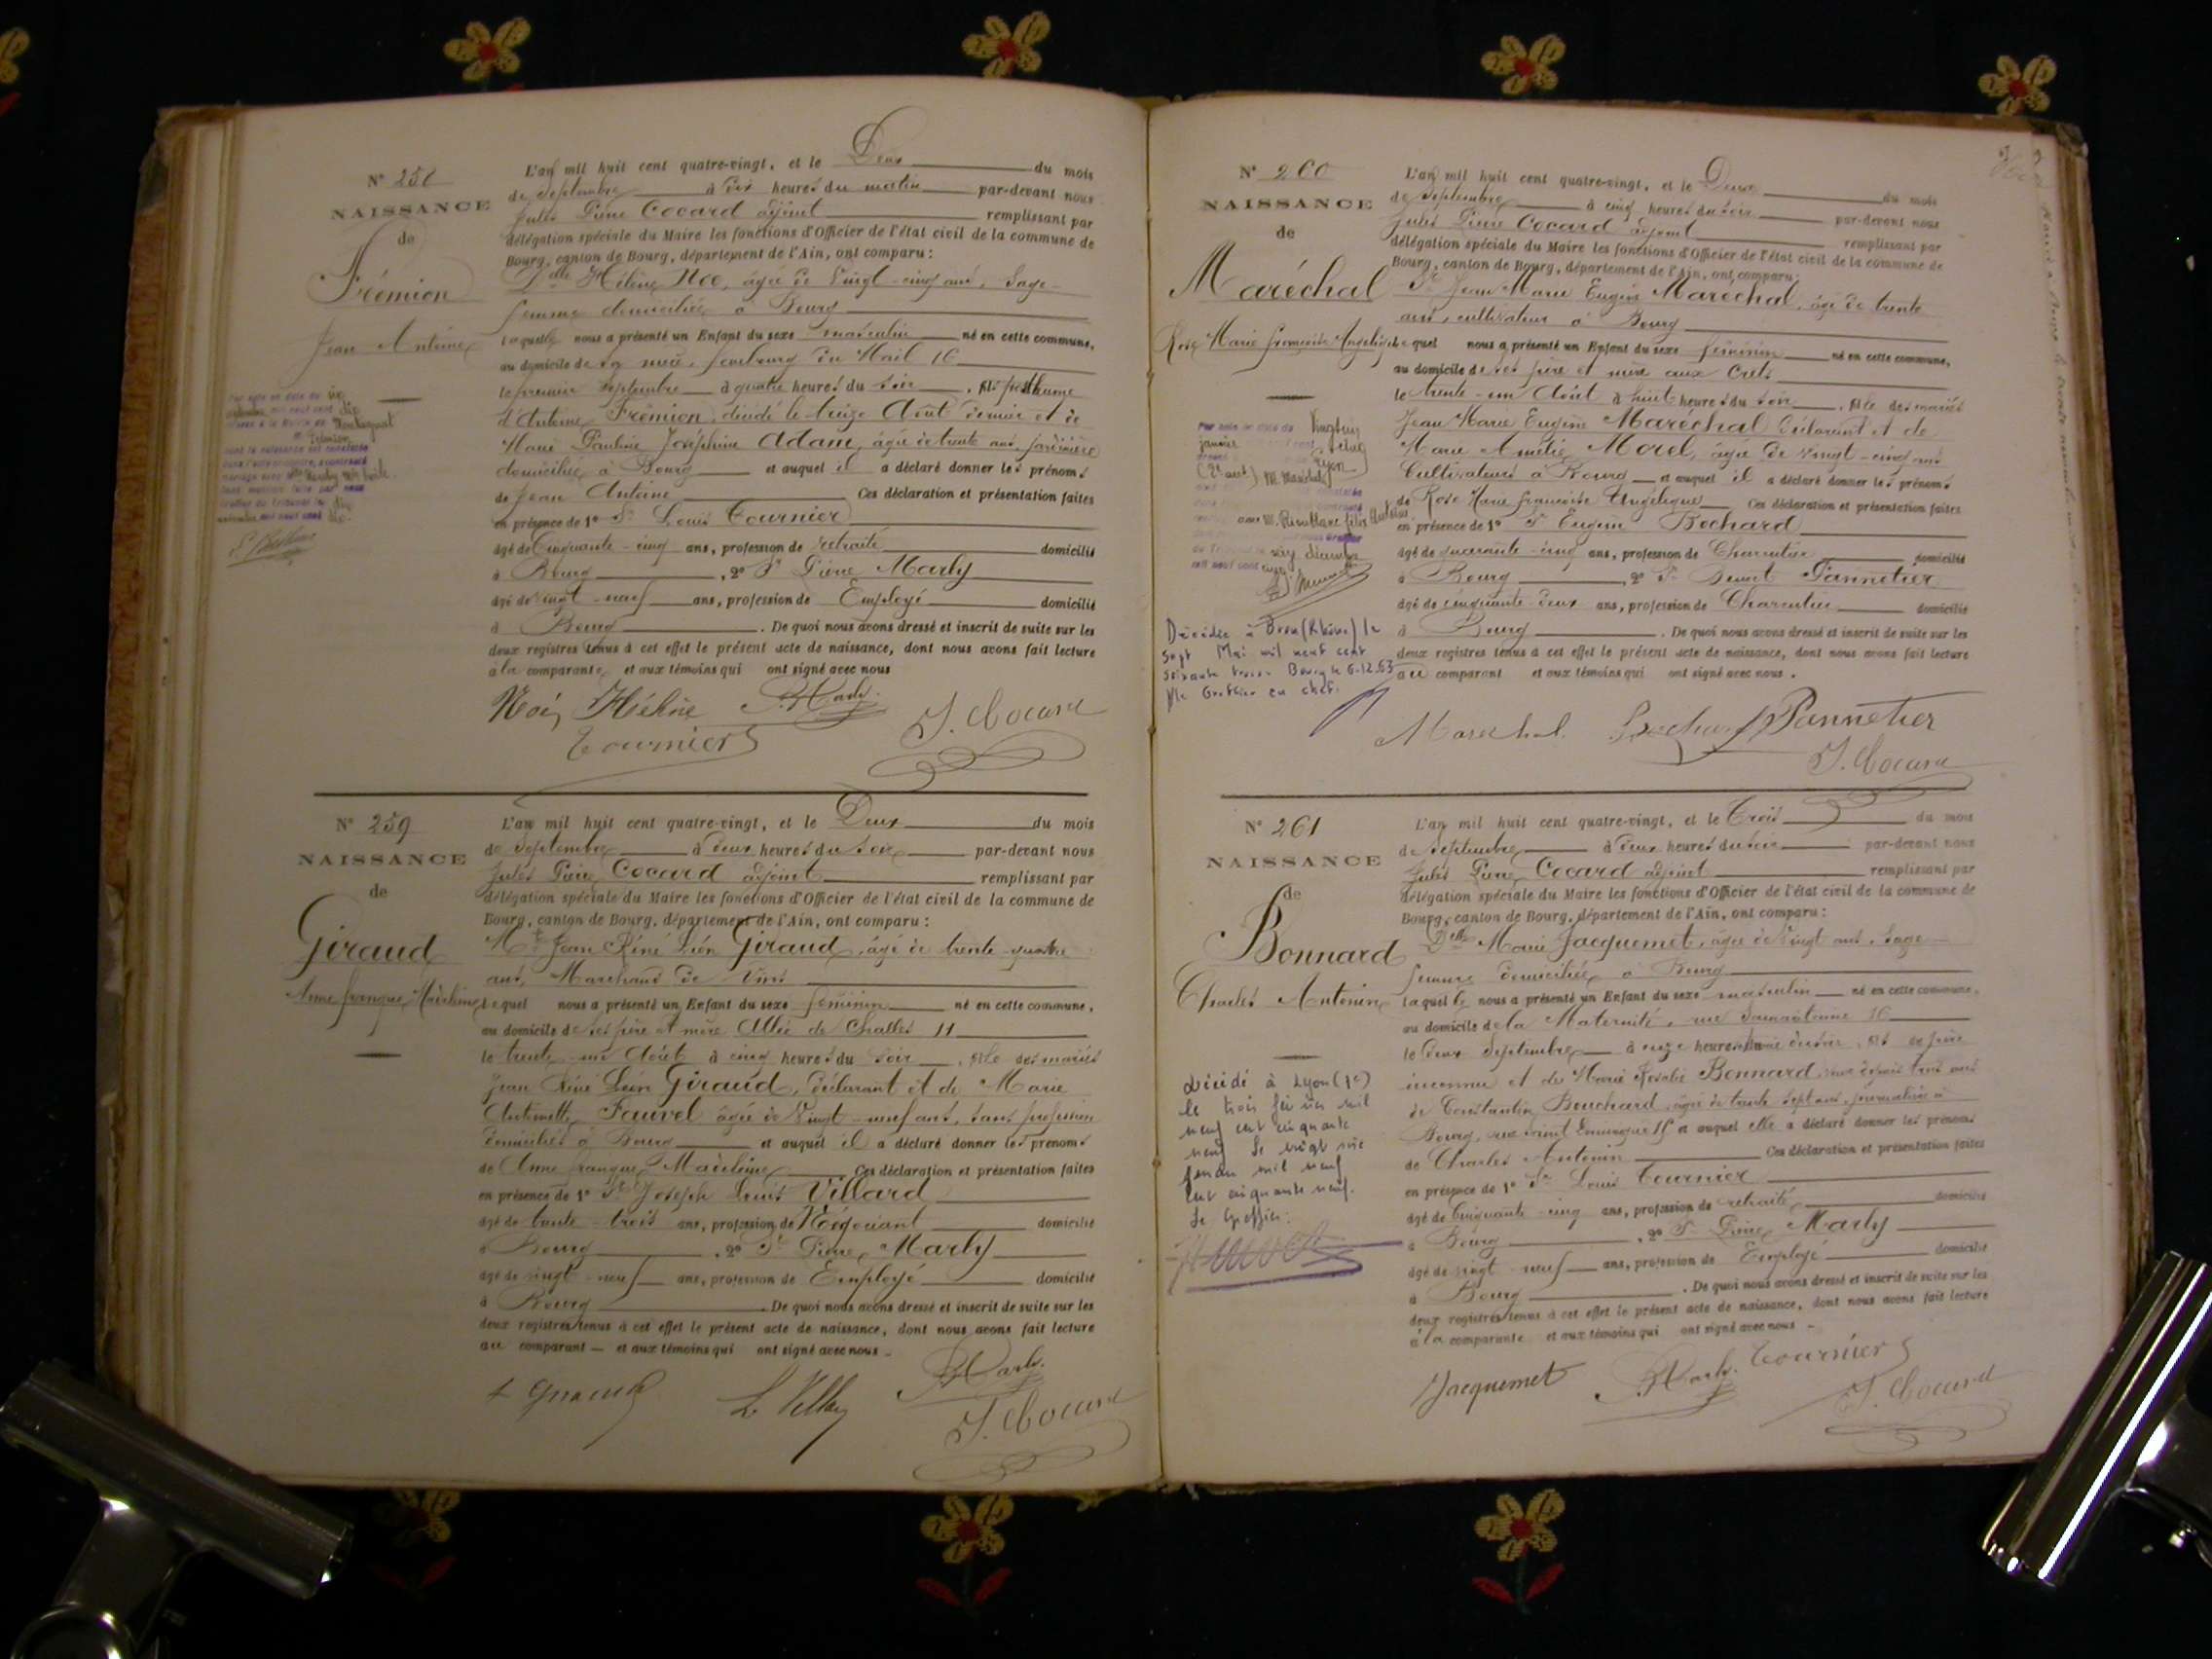 N° 258
NAISSANCE
de
Frémion
Jean Antoine
L'an mil huit cent quatre-vingt, et le Deux du mois
de Septembre à dix heures du matin par-devant nous
Jules Pierre Cocard adjoint remplissant par
délégation spéciale du Maire les fonctions d'Officier de l'état civil de la commune de
Bourg, canton de Bourg, département de l'Ain, ont comparu :
Delle Hélène Noé, âgée de Vingt-cinq ans, Sage-
femme domiciliée à Bourg
laquelle nous a présenté un Enfant du sexe masculin né en cette commune,
au domicile de sa mère, faubourg du Mail 16
le premier Septembre à quatre heures du soir, fils posthume
d'Antoine Frémion, décédé le treize Août dernier et de
Marie Pauline Joséphine Adam, âgée de trente ans, jardinière
domiciliée à Bourg et auquel il a déclaré donner les prénoms
de Jean Antoine Ces déclaration et présentation faites
en présence de 1° Sr Louis Tournier
âgé de Cinquante-cinq ans, profession de retraité domicilié
à Bourg, 2° Sr Pierre Marly
âgé de vingt-neuf ans, profession de Employé domicilié
à Bourg. De quoi nous avons dressé et inscrit de suite sur les
deux registres tenus à cet effet le présent acte de naissance, dont nous avons fait lecture
à la comparante, et aux témoins qui ont signé avec nous
Noé Hélène P. Marly
Tournier J. Cocard
N° 259
NAISSANCE
de
Giraud
Anne françoise Madeleine
L'an mil huit cent quatre-vingt, et le Deux du mois
de Septembre à deux heures du soir par-devant nous
Jules Pierre Cocard adjoint remplissant par
délégation spéciale du Maire les fonctions d'Officier de l'état civil de la commune de
Bourg, canton de Bourg, département de l'Ain, ont comparu :
Mr Jean Réné Léon Giraud, âgé de trente-quatre
ans, Marchand de Vins
lequel nous a présenté un Enfant du sexe féminin né en cette commune,
au domicile de ses père et mère Allée de Challes 11
le trente-un Août à cinq heures du soir, fille des mariés
Jean Réné Léon Giraud, déclarant et de Marie
Antoinette Fauvel âgée de Vingt-neuf ans, sans profession
domiciliés à Bourg et auquel il a déclaré donner les prénoms
de Anne françoise Madeleine Ces déclaration et présentation faites
en présence de 1° Sr Joseph Louis Villard
âgé de trente-trois ans, profession de Négociant domicilié
à Bourg, 2° Sr Pierre Marly
âgé de vingt-neuf ans, profession de Employé domicilié
à Bourg. De quoi nous avons dressé et inscrit de suite sur les
deux registres tenus à cet effet le présent acte de naissance, dont nous avons fait lecture
au comparant et aux témoins qui ont signé avec nous
P. Marly
J. Cocard
N° 260
NAISSANCE
de
Maréchal
Rose Marie françoise Angélique
Décédée à Bron (Rhône) le
sept Mai mil neuf cent
soixante trois Bourg le 6.12.63
Le Greffier en chef.
L'an mil huit cent quatre-vingt, et le Deux du mois
de Septembre à cinq heures du soir par-devant nous
Jules Pierre Cocard adjoint remplissant par
délégation spéciale du Maire les fonctions d'Officier de l'état civil de la commune de
Bourg, canton de Bourg, département de l'Ain, ont comparu :
Sr Jean Marie Eugène Maréchal, âgé de trente
ans, cultivateur à Bourg
lequel nous a présenté un Enfant du sexe féminin né en cette commune,
au domicile de ses père et mère aux Crêts
le trente-un Août à huit heures du soir, fille des mariés
Jean Marie Eugène Maréchal déclarant et de
Marie Amélie Morel, âgée de vingt-cinq ans
Cultivateurs à Bourg et auquel il a déclaré donner les prénoms
de Rose Marie françoise Angélique Ces déclaration et présentation faites
en présence de 1° Sr Eugène Bochard
âgé de quarante-cinq ans, profession de Charcutier domicilié
à Bourg, 2° Sr Benoit Pannetier
âgé de cinquante-deux ans, profession de Charcutier domicilié
à Bourg. De quoi nous avons dressé et inscrit de suite sur les
deux registres tenus à cet effet le présent acte de naissance, dont nous avons fait lecture
au comparant et aux témoins qui ont signé avec nous.
Marechal Bochard Pannetier
J. Cocard
N° 261
NAISSANCE
de
Bonnard
Charles Antonin
Décédé à Lyon (3e)
le trois février mil
neuf cent cinquante
neuf Le vingt six
février mil neuf
cent cinquante neuf.
Le Greffier:
L'an mil huit cent quatre-vingt, et le Trois du mois
de Septembre à deux heures du soir par-devant nous
Jules Pierre Cocard adjoint remplissant par
délégation spéciale du Maire les fonctions d'Officier de l'état civil de la commune de
Bourg, canton de Bourg, département de l'Ain, ont comparu :
Delle Marie Jacquemet, âgée de Vingt ans, Sage-
femme domiciliée à Bourg
laquelle nous a présenté un Enfant du sexe masculin né en cette commune,
au domicile de la Maternité, rue Samaritaine 16
le deux Septembre à onze heures du soir, fils de père
inconnu et de Marie Rosalie Bonnard veuve depuis trois ans
de Constantin Bouchard, âgée de trente sept ans, journalière à
Bourg, et auquel elle a déclaré donner les prénoms
de Charles Antonin Ces déclaration et présentation faites
en présence de 1° Sr Louis Tournier
âgé de Cinquante-cinq ans, profession de retraité domicilié
à Bourg, 2° Sr Pierre Marly
âgé de vingt-neuf ans, profession de Employé domicilié
à Bourg. De quoi nous avons dressé et inscrit de suite sur les
deux registres tenus à cet effet le présent acte de naissance, dont nous avons fait lecture
à la comparante et aux témoins qui ont signé avec nous
Jacquemet P. Marly Tournier
J. Cocard